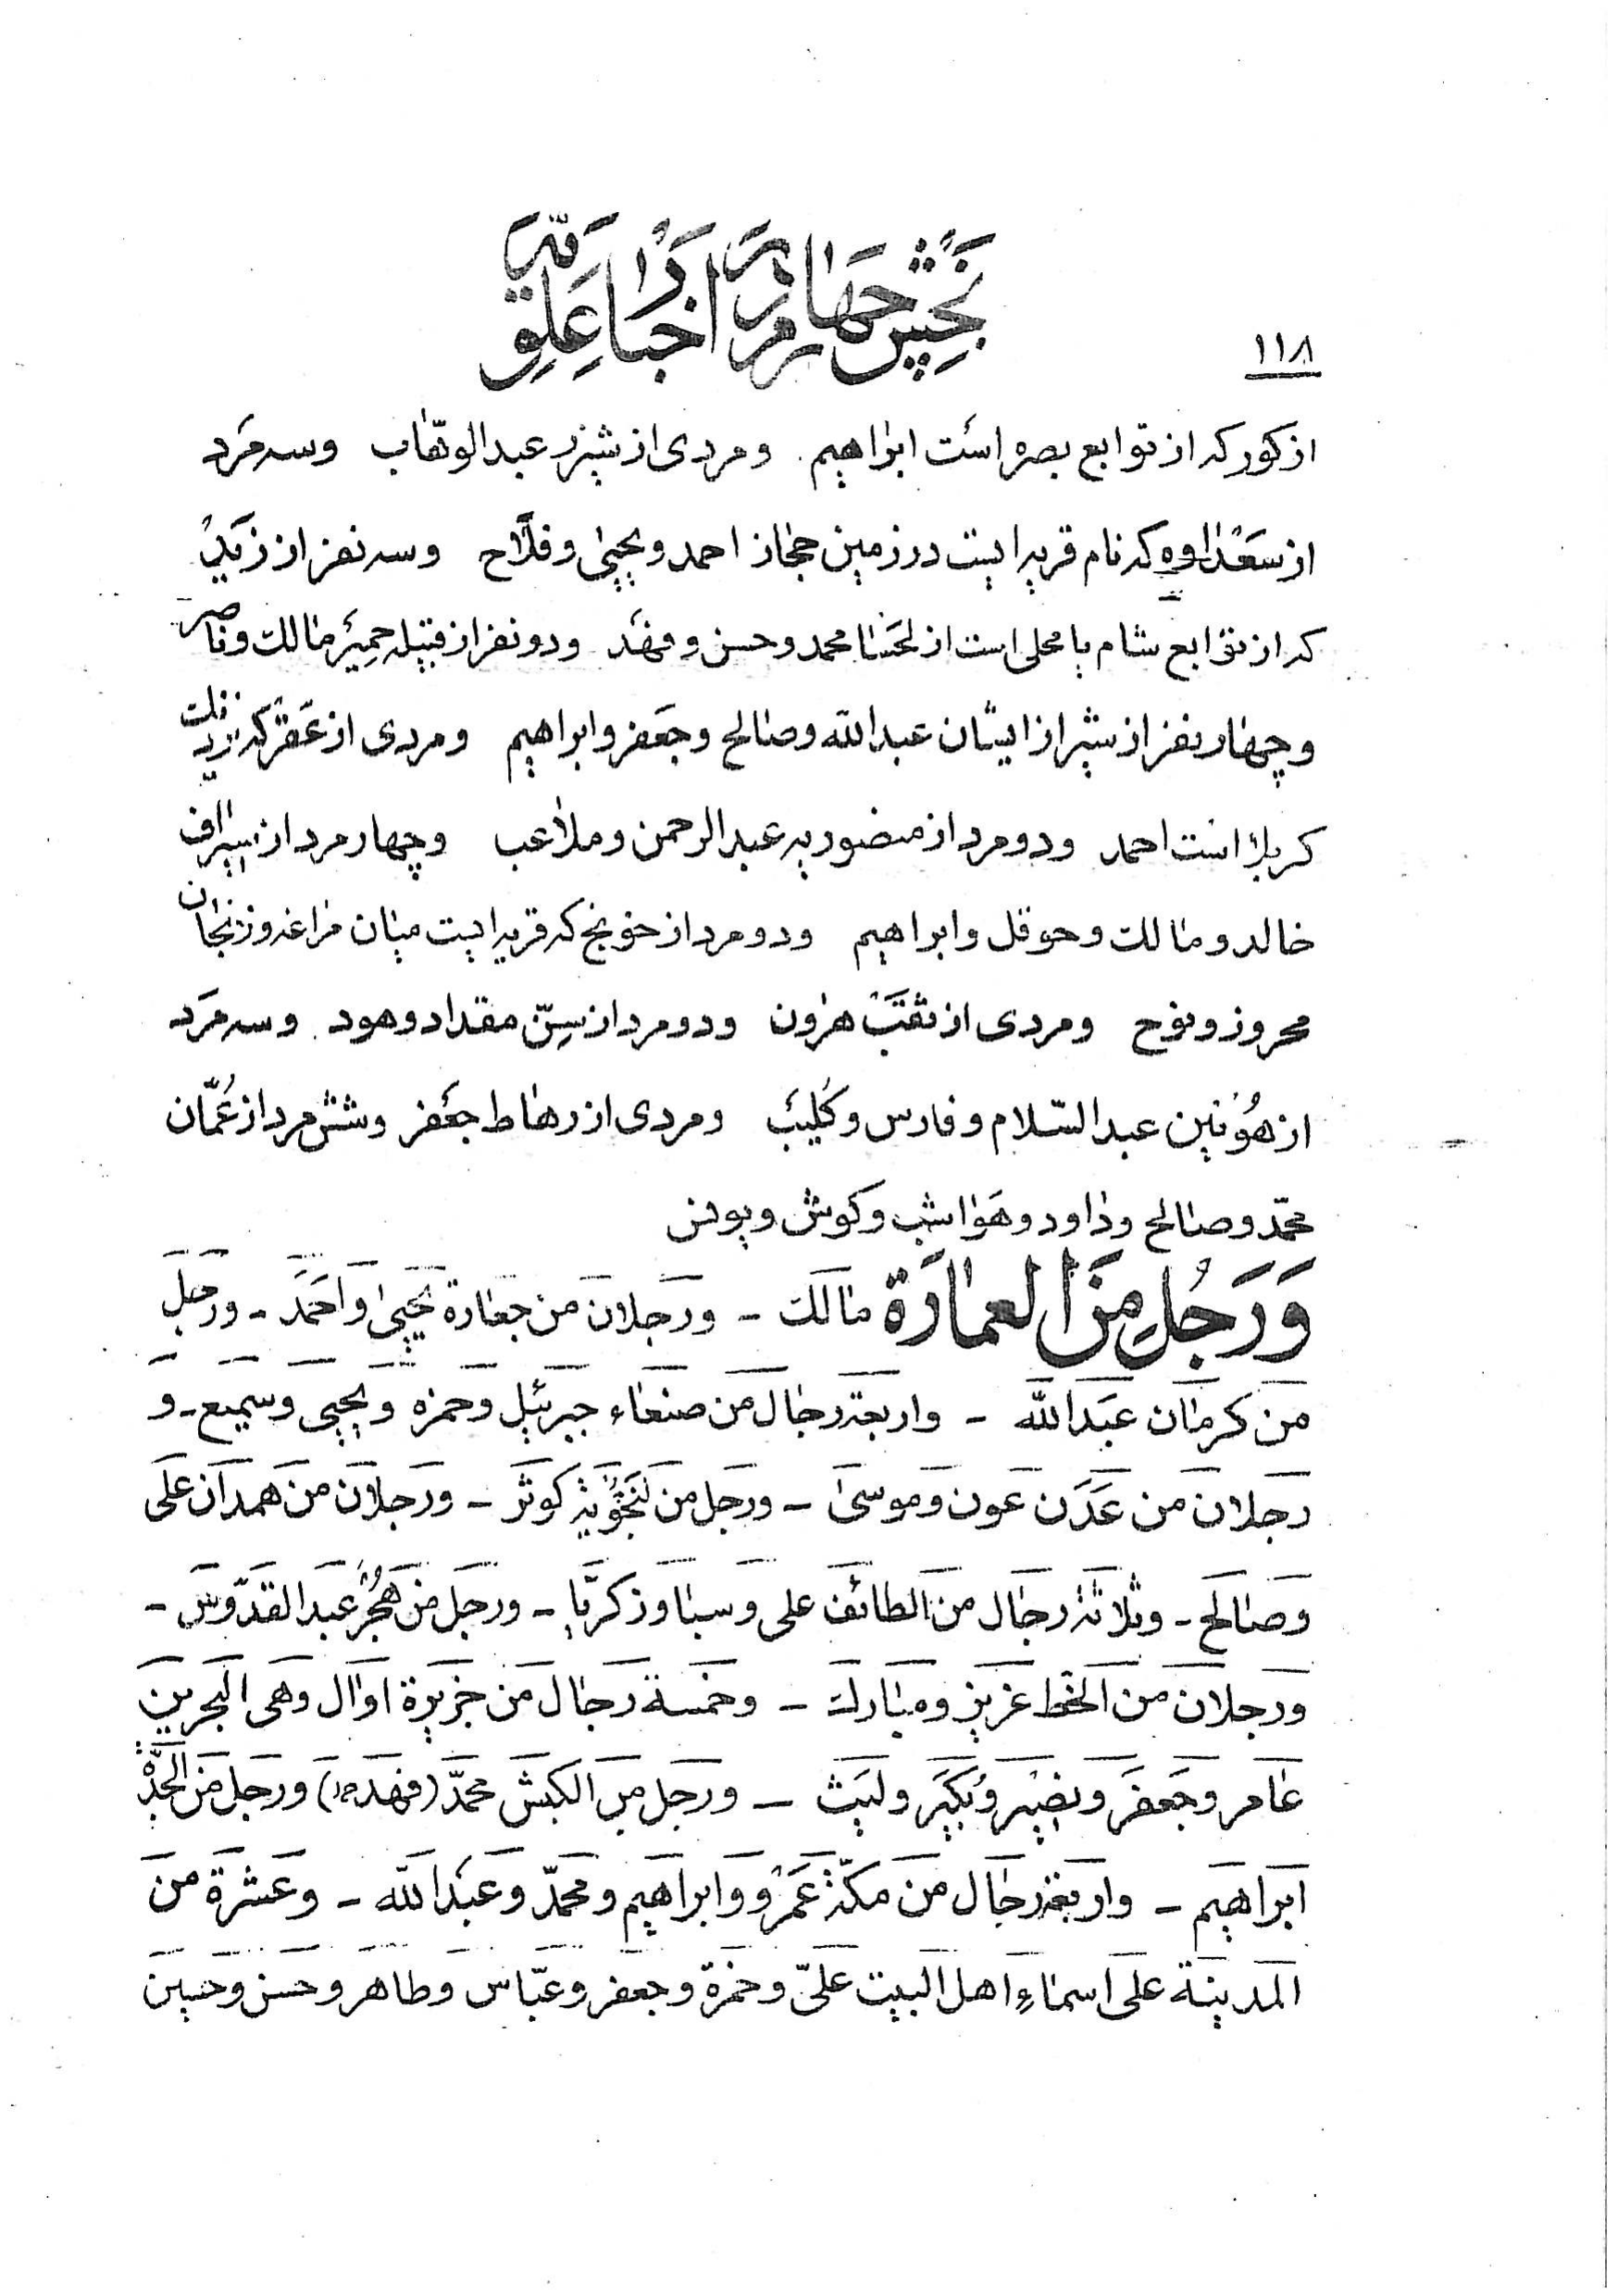 بخش چهارم در اخبار علویه
۱۱۸
از کور که از توابع بصره است ابراهیم و مردی از شیزر عبدالوهّاب و سه مَرد
از سَعْداوه که نام قریه ایست در زمین حجاز احمد و یحیی و فلّاح و سه نفر از زَیْد
که از توابع شام یا محلی است از لحسا محمد و حسن و فهد و دو نفر از قبیله حِمیَر مالک و ناصر
و چهار نفر از شیراز ایشان عبدالله و صالح و جعفر و ابراهیم و مردی از عَقْر که نزدیک
کربلا است احمد و دو مرد از منصوریه عبدالرحمن و ملاعب و چهار مرد از سیراف
خالد و مالک و حوقل و ابراهیم و دو مرد از خونج که قریه ایست میان مراغه و زنجان
محروز و نوح و مردی از ثقب هرون و دو مرد از سِنّ مقداد و هود و سه مَرد
از هُونین عبدالسّلام و فارس و کُلیب و مردی از رهاط جعفر و شش مرد از عُمّان
محمّد و صالح و داود و هَواشب و کوش و یونس
وَرَجُلٌ مِنَ العمارَة مالک - ورجلان من جعارة یحیی واحمد - ورجل
من کرمان عبدالله - واربعة رجال من صنعاء جبرئیل وحمزه ویحیی وسمیع - و
رجلان من عَدَن عون وموسی - ورجل من لنجویة کوثر - ورجلان من همدان علی
وصالح - وثلاثة رجال من الطائف علی وسبا وزکریّا - ورجل من هَجَر عبدالقدّوس -
ورجلان من الخط عزیز ومبارک - وخمسة رجال من جزیرة اوال وهی البحرین
عامر وجعفر ونصیر وبُکیر ولیث - ورجل من الکبش محمّد (فهد ص) ورجل من الجدّة
ابراهیم - واربعة رجال من مکّة عَمْرو وابراهیم ومحمّد وعبدالله - وعشرة من
المدینة علی اسماءِ اهل البیت علیّ وحمزة وجعفر وعبّاس وطاهر وحسن وحسین